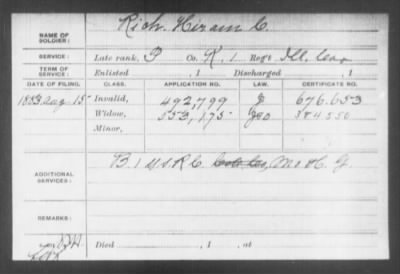 NAME OF SOLDIER: Rich, Hiram C.
SERVICE: Late rank, P Co. K, 1 Reg't Ill. Cav
TERM OF SERVICE: Enlisted , 1 Discharged , 1
DATE OF FILING. CLASS. APPLICATION NO. LAW. CERTIFICATE NO.
1883 Aug 15 Invalid, 492,799 676.653
Widow, 553,175 384550
Minor,
ADDITIONAL SERVICES: B. 1 U.S.R.C. Mo H. G
REMARKS:
Died , 1 , at